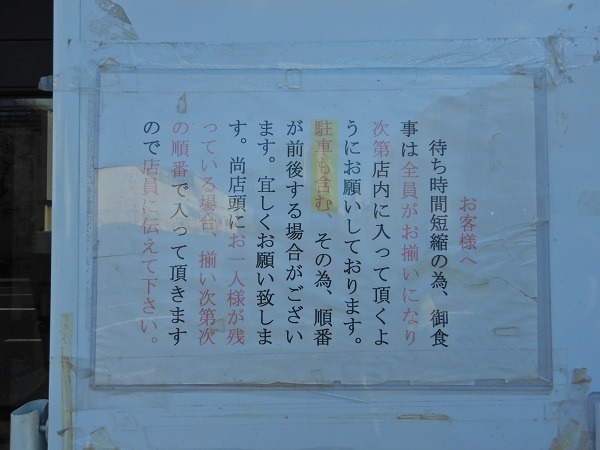 お客様へ
待ち時間短縮の為、御食
事は全員がお揃いになり
次第店内に入って頂くよ
うにお願いしております。
駐車も含む、その為、順番
が前後する場合がござい
ます。宜しくお願い致しま
す。尚店頭にお一人様が残
っている場合、揃い次第次
の順番で入って頂きます
ので店員に伝えて下さい。